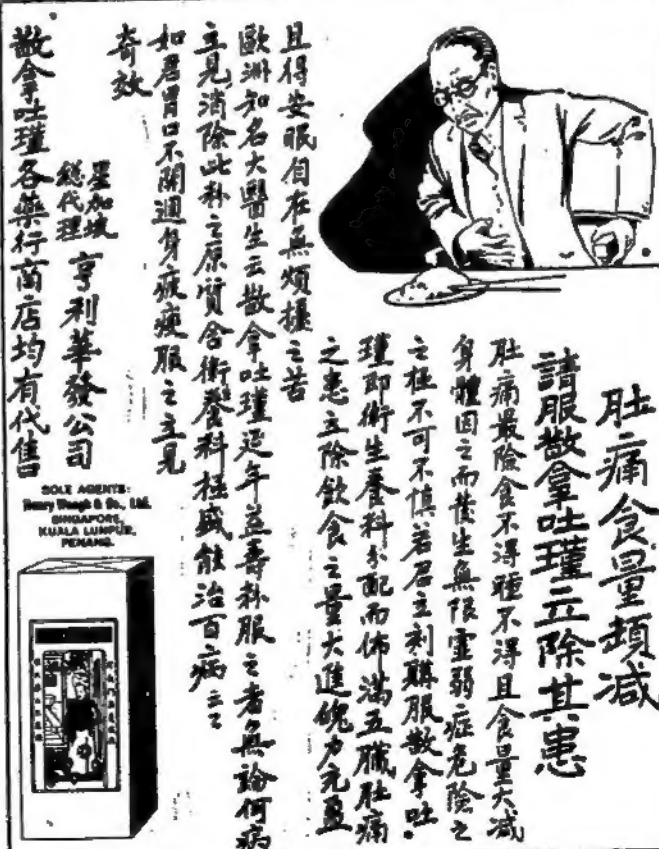 肚痛食量頓減
請服散拿吐瑾立除其患
肚痛最險食不得睡不得且食量大減
身體因之而發生無限虛弱症危險之
之極不可不慎若君立刻購服散拿吐
瑾即衛生養料分配而佈滿五臟肚痛
之患立除飲食之量大進魄力充盈
且得安眠自在無煩擾之苦
歐洲知名大醫生云散拿吐瑾延年益壽粉服之者無論何病
立見消除此粉之原質含衛養料極盛能治百病云云
如君胃口不開週身疲瘦服之立見
奇效
星加坡
總代理 亨利華發公司
散拿吐瑾各藥行商店均有代售
SOLE AGENTS:
Henry Waugh & Co., Ltd.
SINGAPORE,
KUALA LUMPUR,
PENANG.